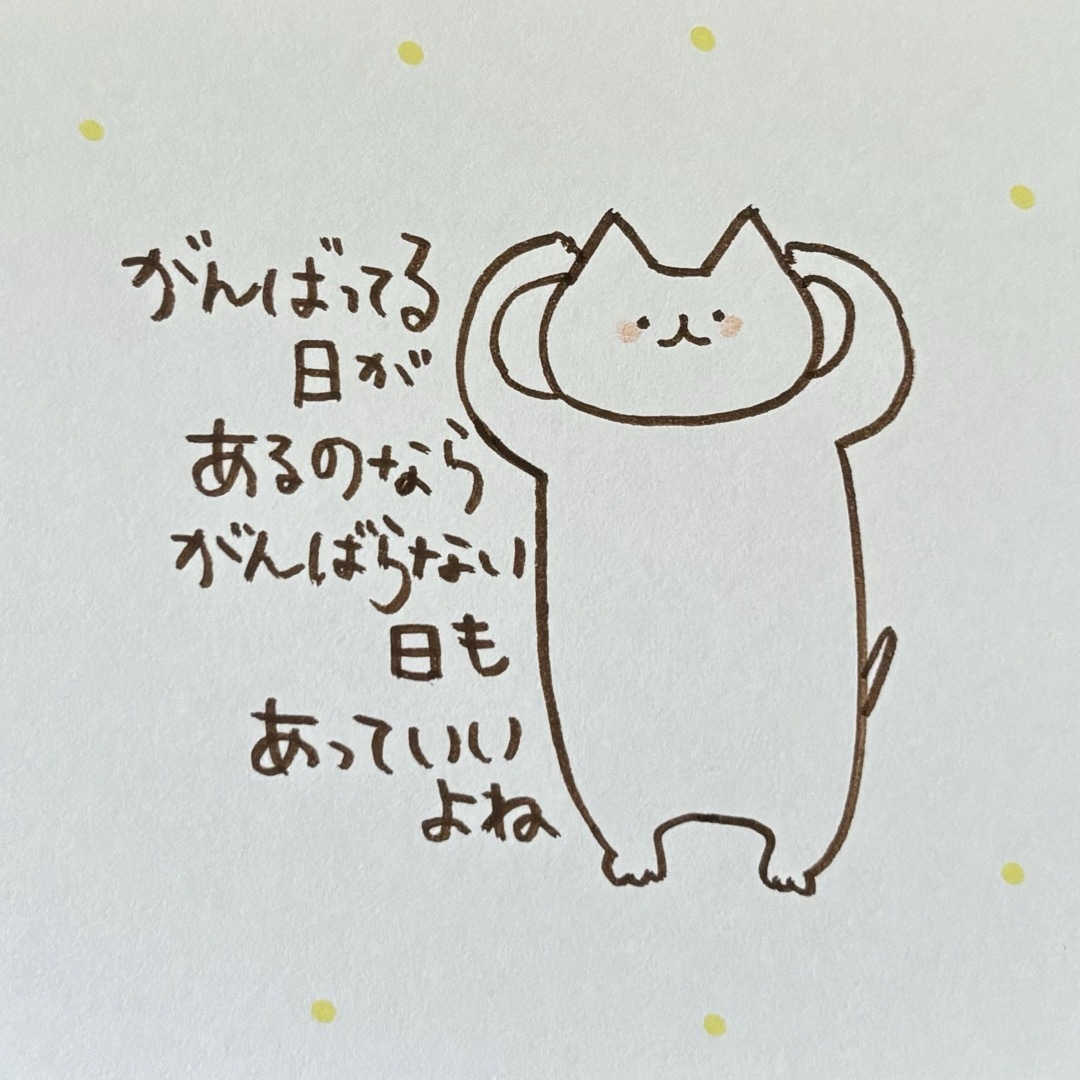 がんばってる
日が
あるのなら
がんばらない
日も
あっていい
よね